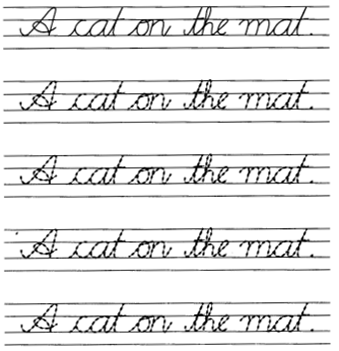 A cat on the mat.
A cat on the mat.
A cat on the mat.
A cat on the mat.
A cat on the mat.